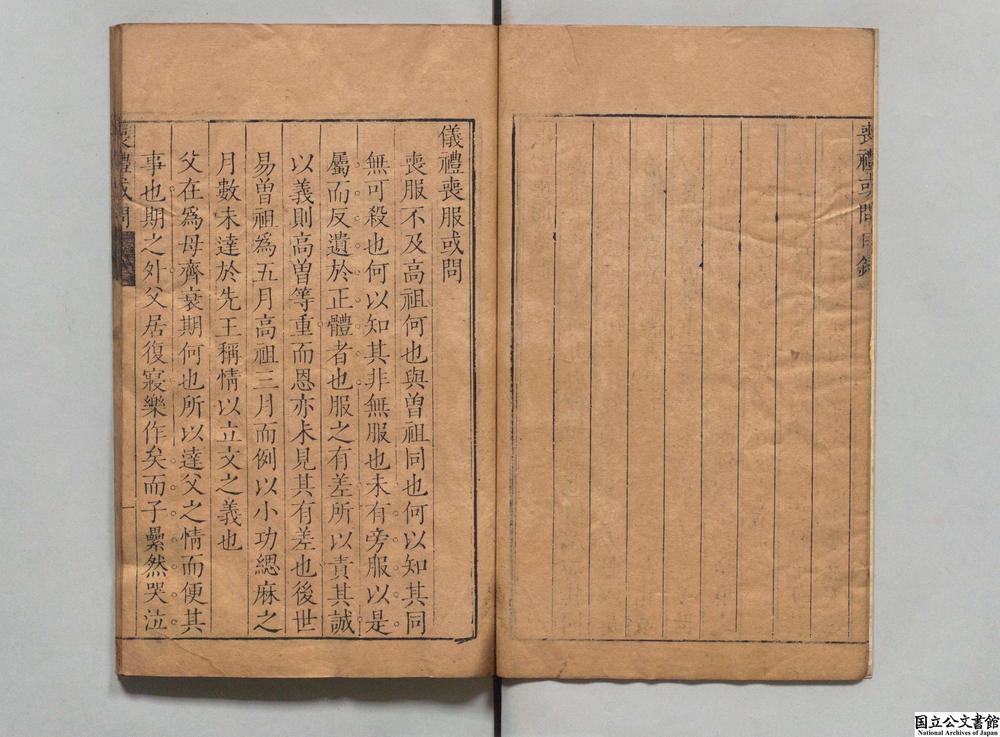 喪禮或問目錄
儀禮喪服或問
喪服不及高祖何也與曽祖同也何以知其同
無可殺也何以知其非無服也未有旁服以是
屬而反遺於正體者也服之有差所以責其誠
以義則高曽等重而恩亦未見其有差也後世
易曽祖爲五月高祖三月而例以小功緦麻之
月數未達於先王稱情以立文之義也
父在爲母齊衰期何也所以達父之情而便其
事也期之外父居復寢樂作矣而子纍然哭泣
喪禮或問
一
国立公文書館
National Archives of Japan